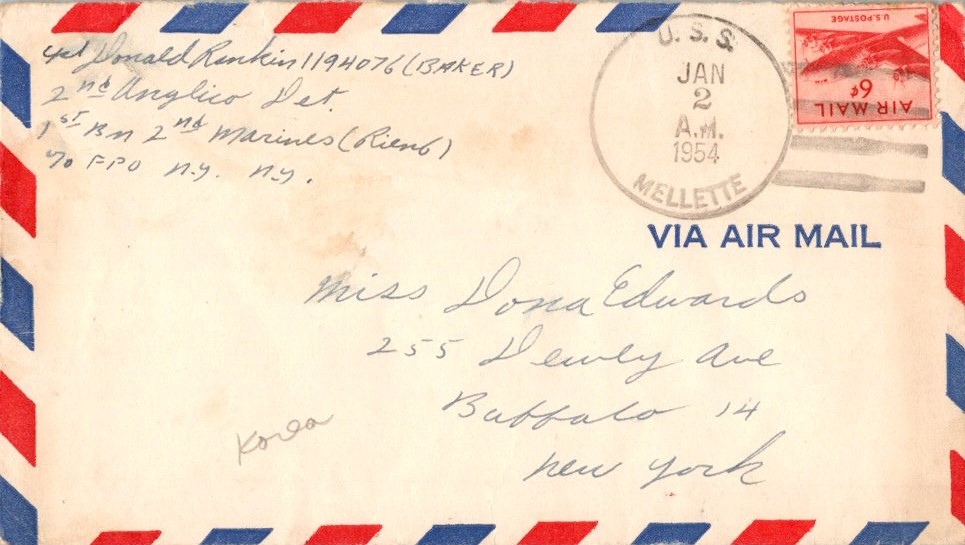 Donald Rankin 1194076 (BAKER)
2nd Anglico Det.
1st Bn 2nd Marines (Reinf)
c/o FPO N.Y. N.Y.
U.S.S.
JAN
2
A.M.
1954
MELLETTE
U.S. POSTAGE
6¢
AIR MAIL
VIA AIR MAIL
Miss Dona Edwards
255 Dewey Ave
Buffalo 14
New York
Korea